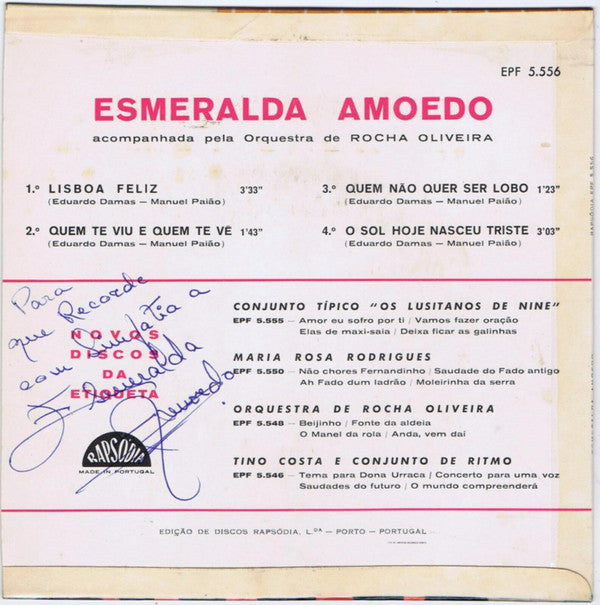 EPF 5.556
ESMERALDA AMOEDO
acompanhada pela Orquestra de ROCHA OLIVEIRA
1.º LISBOA FELIZ 3'33"
(Eduardo Damas — Manuel Paião)
2.º QUEM TE VIU E QUEM TE VÊ 1'43"
(Eduardo Damas — Manuel Paião)
3.º QUEM NÃO QUER SER LOBO 1'23"
(Eduardo Damas — Manuel Paião)
4.º O SOL HOJE NASCEU TRISTE 3'03"
(Eduardo Damas — Manuel Paião)
Para
que Recorde
com Simpatia a
Esmeralda
Amoedo
NOVOS
DISCOS
DA
ETIQUETA
RAPSÓDIA
MADE IN PORTUGAL
CONJUNTO TÍPICO "OS LUSITANOS DE NINE"
EPF 5.555 — Amor eu sofro por ti / Vamos fazer oração
Elas de maxi-saia / Deixa ficar as galinhas
MARIA ROSA RODRIGUES
EPF 5.550 — Não chores Fernandinho / Saudade do Fado antigo
Ah Fado dum ladrão / Moleirinha da serra
ORQUESTRA DE ROCHA OLIVEIRA
EPF 5.548 — Beijinho / Fonte da aldeia
O Manel da rola / Anda, vem daí
TINO COSTA E CONJUNTO DE RITMO
EPF 5.546 — Tema para Dona Urraca / Concerto para uma voz
Saudades do futuro / O mundo compreenderá
EDIÇÃO DE DISCOS RAPSÓDIA, L.DA — PORTO — PORTUGAL